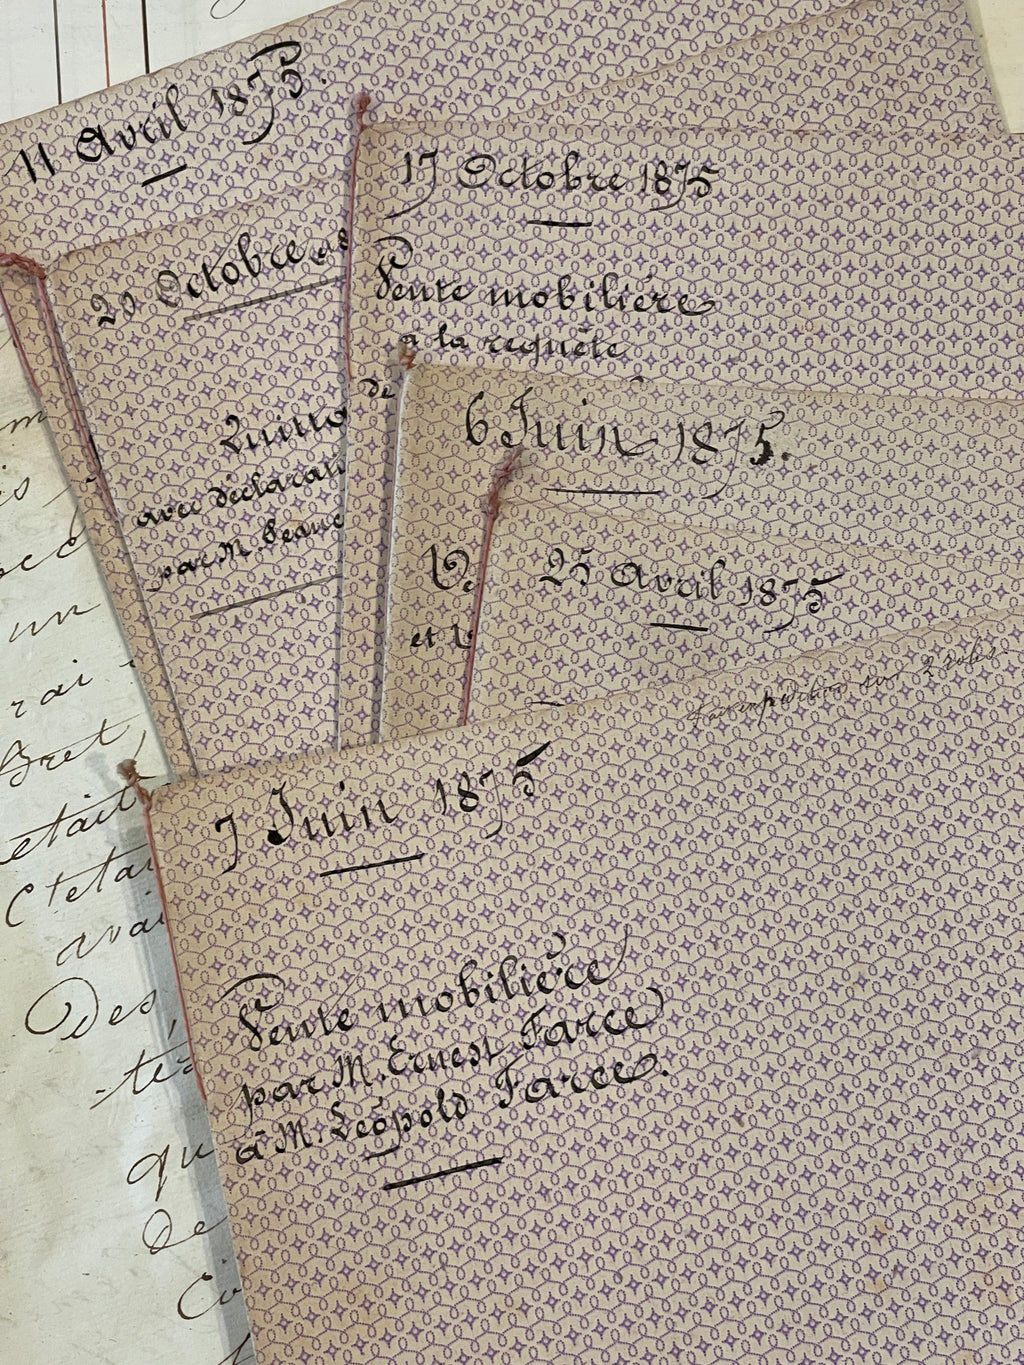 11 Avril 1875.
17 Octobre 1875
Vente mobilière
à la requête
de
20 Octobre 18
avec déclarati
par M. Beauc
6 Juin 1875.
et
25 Avril 1875
sur 2 rôles.
7 Juin 1875
Vente mobilière
par M. Ernest Farce
à M. Léopold Farce.
un
rai
Bret,
etait
C'etai
avai
Des,
qu
De